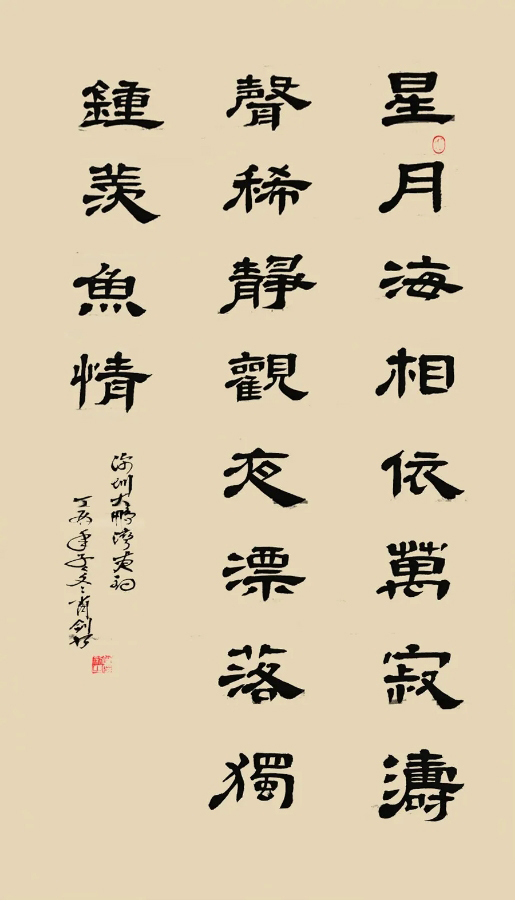 星月海相依萬寂濤
聲稀靜觀夜漂落獨
鍾羨魚情
深圳大鵬灣夜詞
丁亥年冬